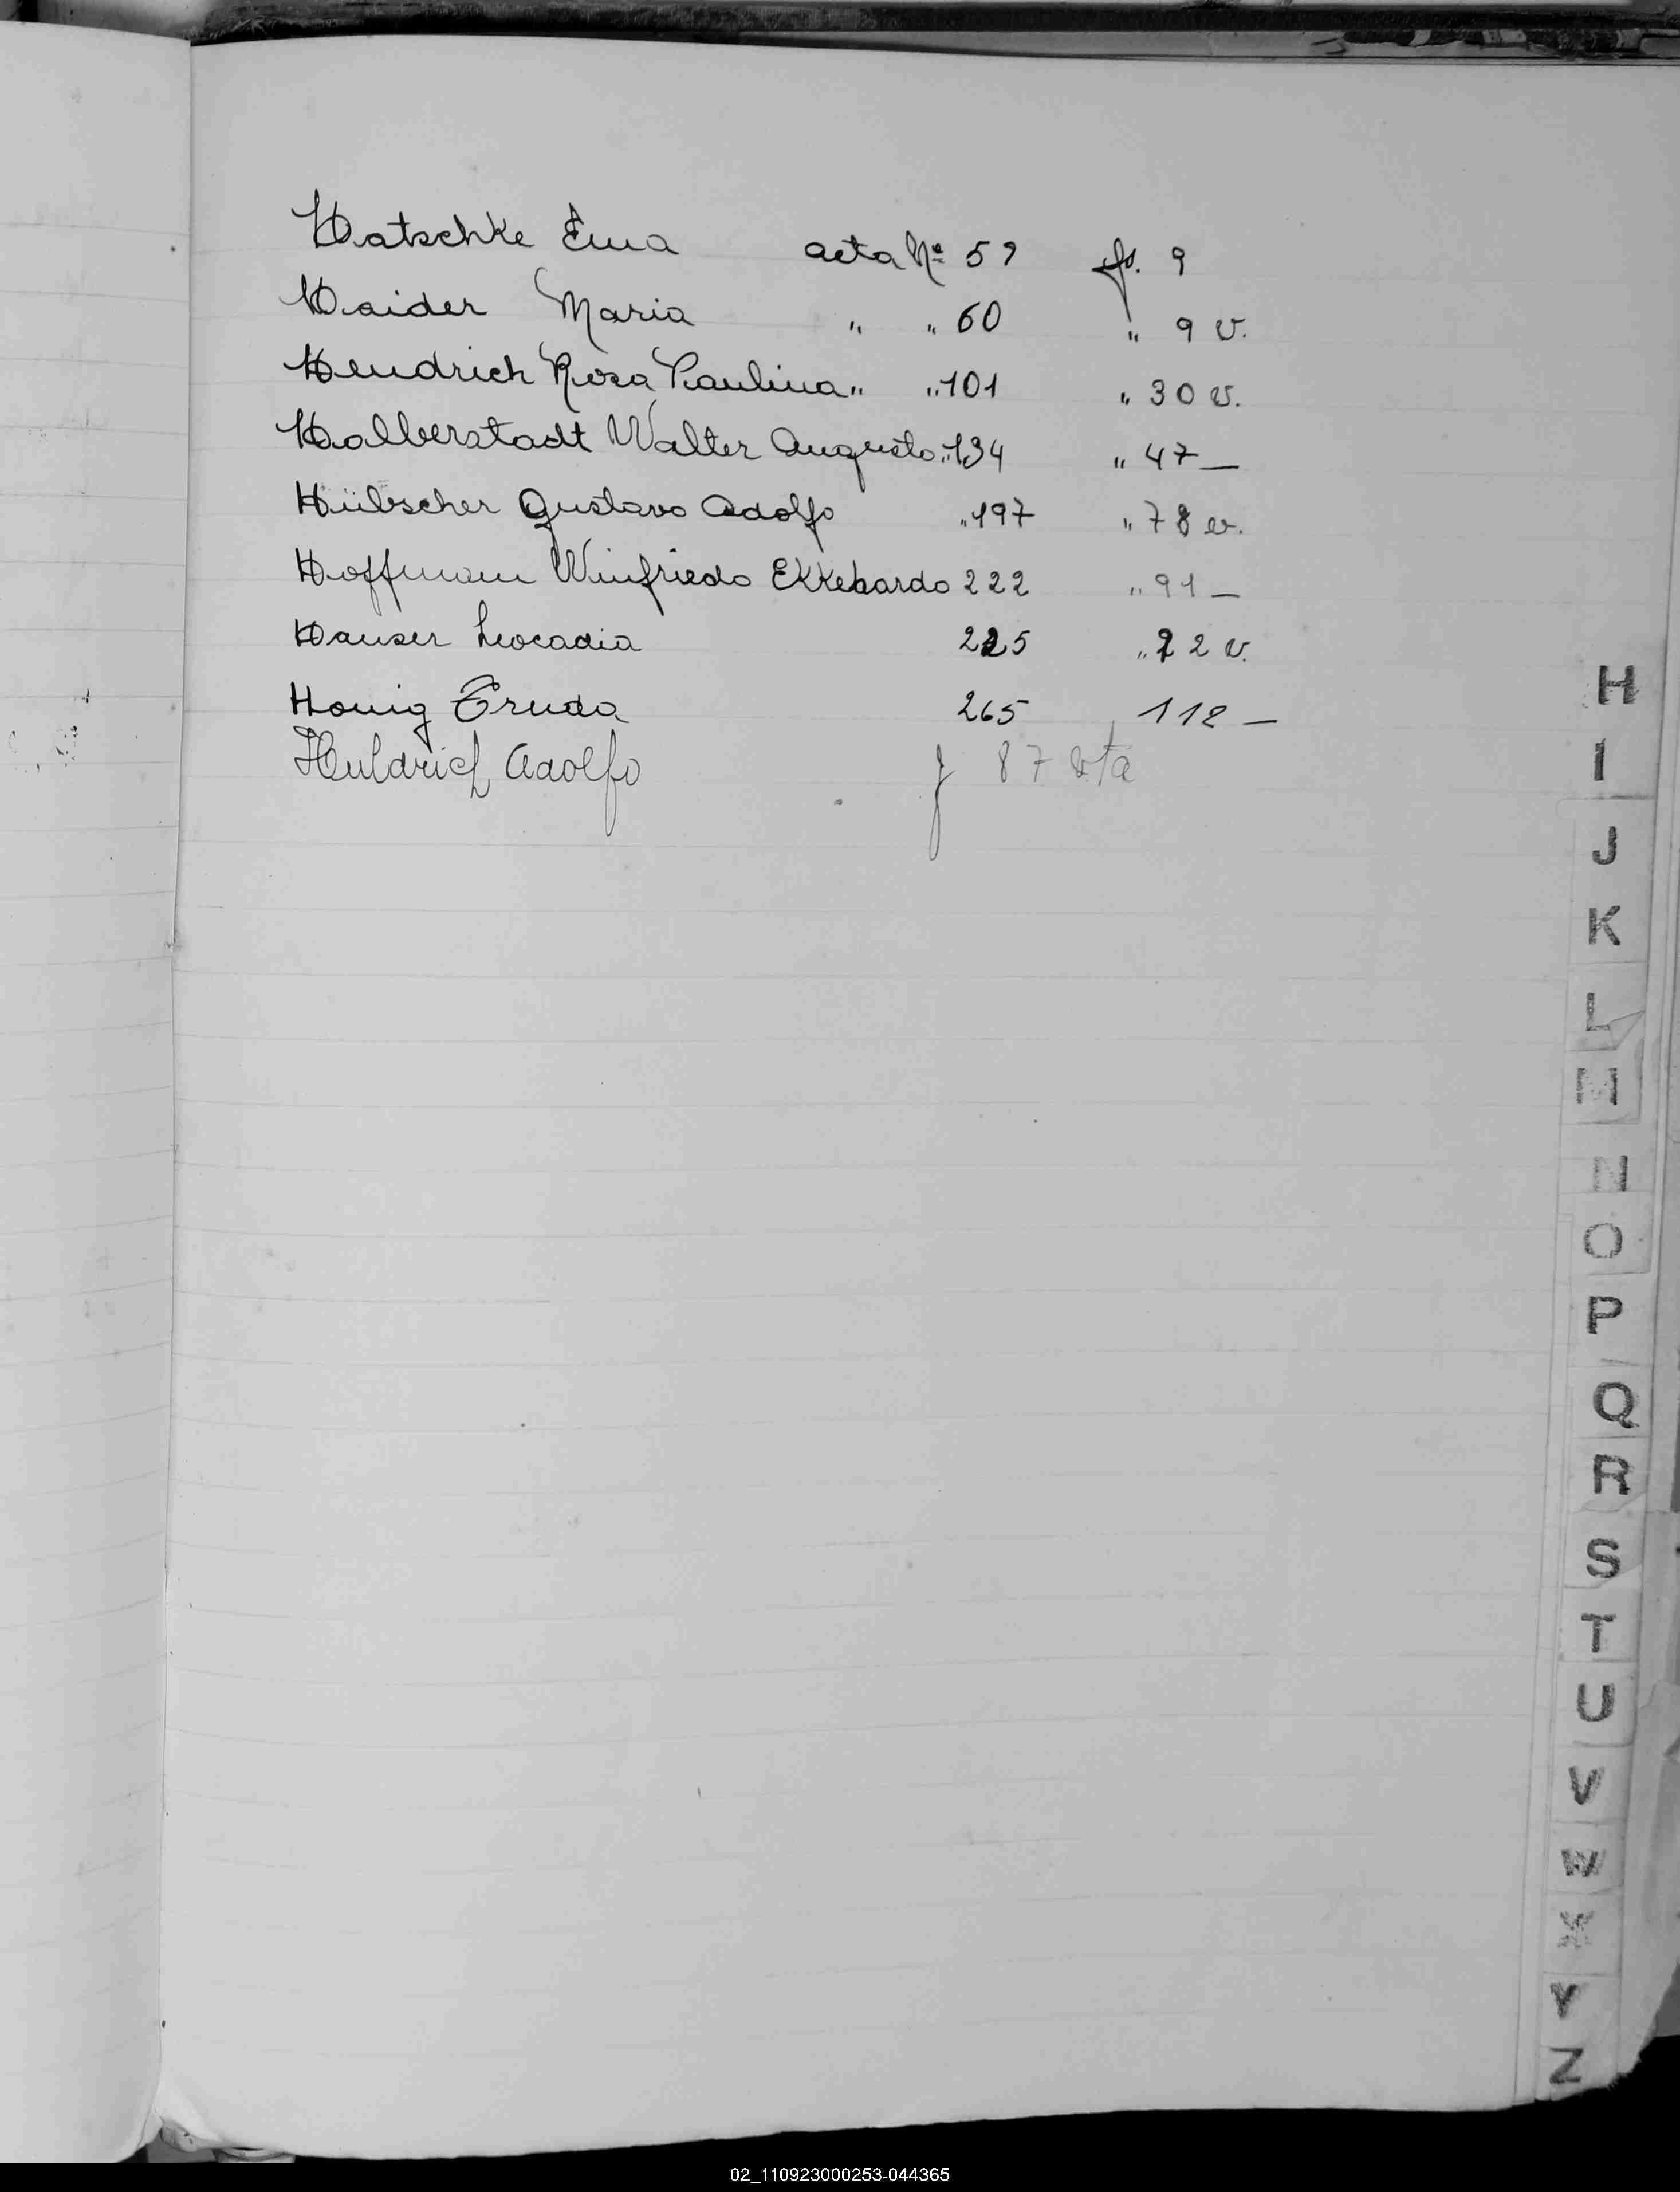 Hatschke Ema acta Nº 59 fs. 9
Haider Maria " " 60 " 9 v.
Hendrich Rosa Paulina " " 101 " 30 v.
Halberstadt Walter Augusto " 134 " 47 —
Hübscher Gustavo Adolfo " 197 " 78 v.
Hoffmann Winfriedo Ekkehardo 222 " 91 —
Hauser Leocadia 225 " 92 v.
Honig Truda 265 112 —
Huldrich Adolfo f 87 vta
H
I
J
K
L
M
N
O
P
Q
R
S
T
U
V
W
X
Y
Z
02_110923000253-044365